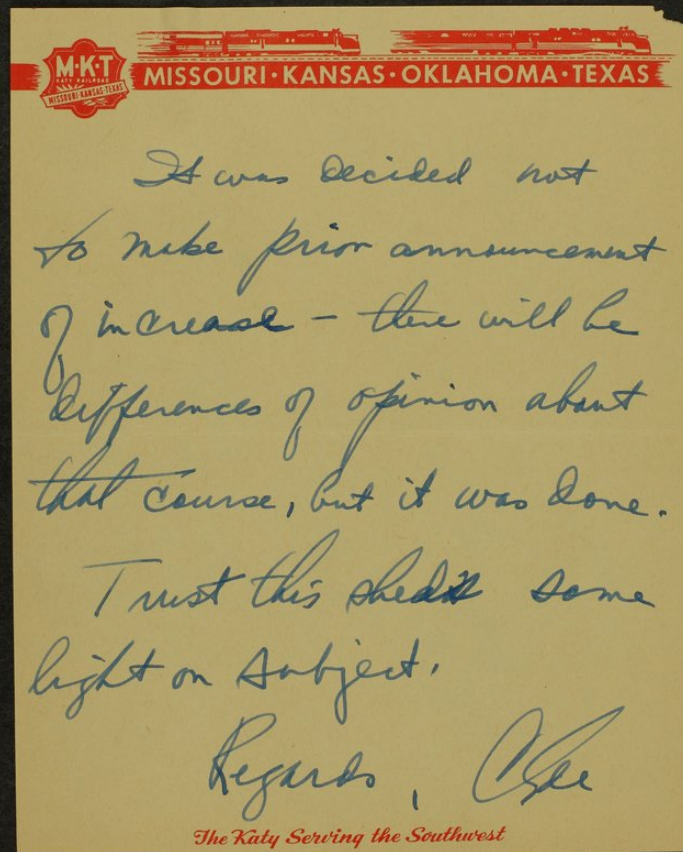 M·K·T
KATY RAILROAD
MISSOURI-KANSAS-TEXAS
MISSOURI·KANSAS·OKLAHOMA·TEXAS
It was decided not
to make prior announcement
of increase – there will be
differences of opinion about
that course, but it was done.
Trust this sheds some
light on subject.
Regards,
The Katy Serving the Southwest